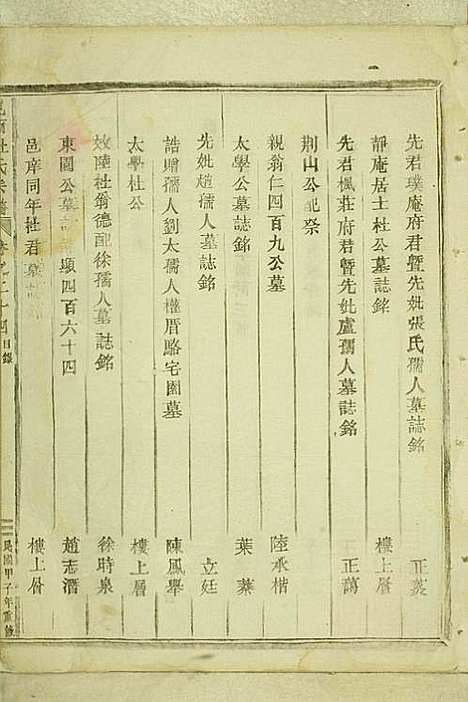 先君璞庵府君暨先妣張氏孺人墓誌銘 正蓂
靜庵居士杜公墓誌銘 樓上層
先君楓莊府君暨先妣盧孺人墓誌銘 正蔼
荆山公配祭 陸承楷
親翁仁四百九公墓
太學公墓誌銘 葉蓁
先妣趙孺人墓誌銘 立廷
誥贈孺人劉太孺人權厝駱宅園墓 陳鳳舉
太學杜公 樓上層
效陸杜翁德配徐孺人墓誌銘 徐時泉
東園公墓誌 顯四百六十四 趙志濳
邑庠同年杜君墓誌 樓上層
杜氏宗譜 目錄
民國甲子年重修